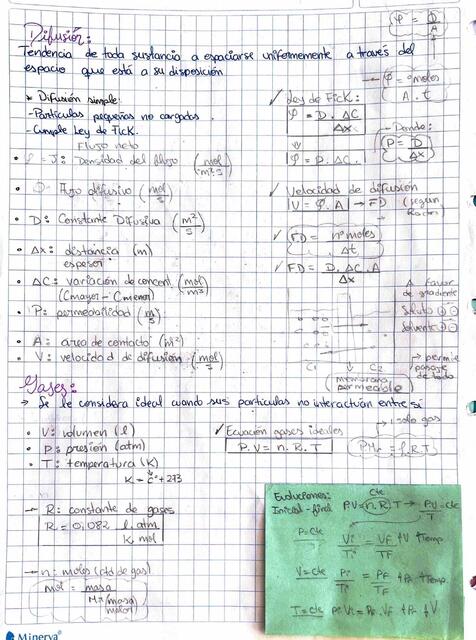 Difusión:
φ = Φ / A
Tendencia de toda sustancia a espaciarse uniformemente a través del
espacio que está a su disposición
φ = nºmoles / A . t
* Difusión simple:
- Partículas pequeñas no cargadas.
- Cumple Ley de Fick.
Flujo neto
✓ Ley de Fick:
φ = D . ΔC / Δx
φ = P . ΔC
Donde:
P = D / Δx
• φ = J: Densidad del flujo (mol / m² s)
• Φ: Flujo difusivo (mol / s)
• D: Constante Difusiva (m² / s)
• Δx: distancia (m)
espesor
• ΔC: variación de concent. (mol / m³)
(Cmayor - Cmenor)
• P: permeabilidad (m / s)
• A: área de contacto (m²)
• V: velocidad de difusión (mol / s)
✓ Velocidad de difusión
V = φ . A → FD (según
✓ FD = nº moles / Δt
✓ FD = D . ΔC . A / Δx
A favor
de gradiente
Soluto
Solvente
C1 C2
membrana
permeable
→ permie
pasaje
de todo
Gases:
→ Se le considera ideal cuando sus partículas no interactúan entre sí
• V: volumen (l)
• P: presión (atm)
• T: temperatura (K)
K = C° + 273
✓ Ecuación gases ideales
P . V = n . R . T
solo gas
- R: constante de gases
R = 0,082 l . atm / K . mol
- n: moles (ctd de gas)
mol = masa / Mr (masa molar)
Evoluciones:
Inicial - final
cte
P.V = (n.R) T → P.V / T = cte
P = cte Vi / Ti = VF / TF ↑V ↑Temp
V = cte Pi / Ti = PF / TF ↑P ↑Temp
T = cte Pi . Vi = PF . VF ↑P ↓V
Minerva